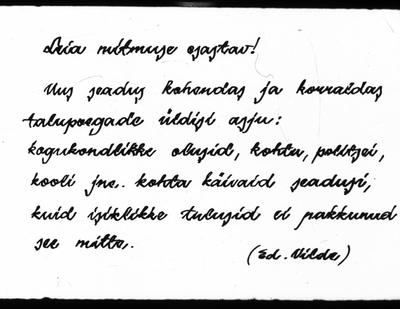 Leia mitmuse osastav!
Uus seadus kohendas ja korraldas
talupoegade üldisi asju:
kogukondlikke olusid, kohtu, politsei,
kooli jne. kohta käivaid seadusi,
kuid isiklikke tulusid ei pakkunud
see mitte.
(Ed. Vilde)